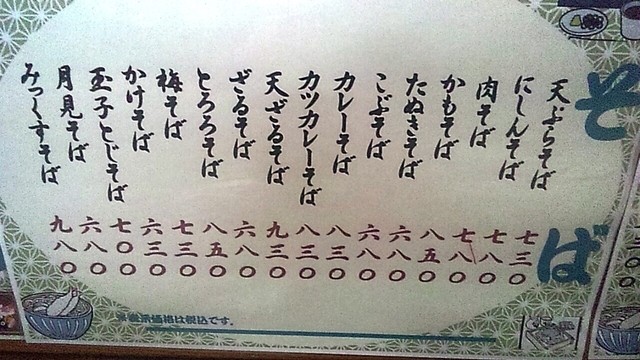 そば
天ぷらそば 七三〇
にしんそば 七八〇
肉そば 七八〇
かもそば 八五〇
たぬきそば 六八〇
こぶそば 六八〇
カレーそば 八三〇
カツカレーそば 八三〇
天ざるそば 九三〇
ざるそば 六八〇
とろろそば 八五〇
梅そば 七三〇
かけそば 六三〇
玉子とじそば 七〇〇
月見そば 六八〇
みっくすそば 九八〇
※表示価格は税込です。